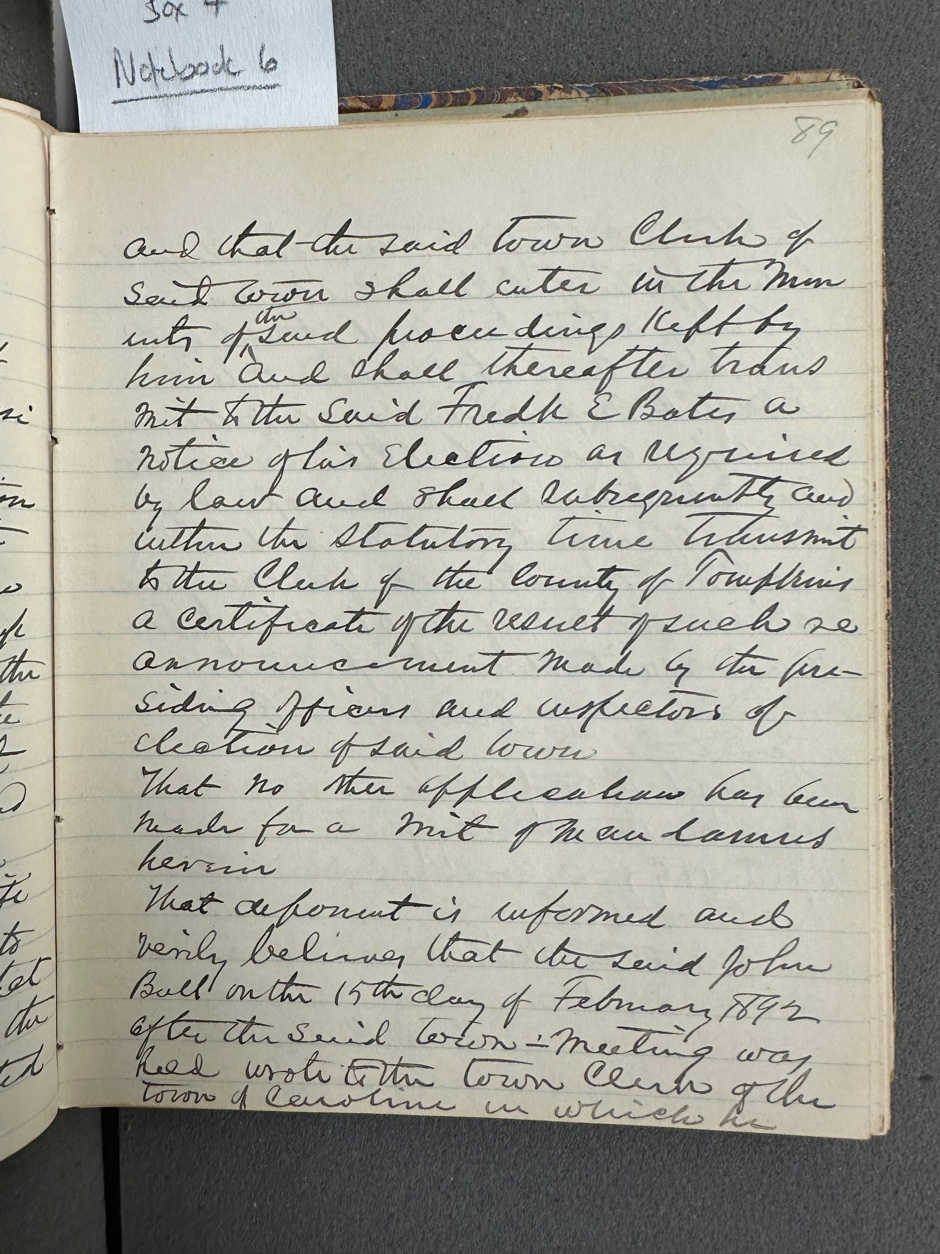 Box 4
Notebook 6
89
and that the said town Clerk of
said town shall enter in the Min
utes of the said proceedings Kept by
him and shall thereafter trans
mit to the said Fredk E Bates a
notice of his Election as required
by law and shall subsequently and
within the statutory time transmit
to the Clerk of the County of Tompkins
a certificate of the result of such re
announcement made by the pre-
siding officers and inspectors of
election of said town
That no other application has been
made for a writ of Mandamus
herein
That deponent is informed and
verily believes that the said John
Bull on the 15th day of February 1892
after the said town-Meeting was
held wrote to the town Clerk of the
town of Caroline in which he